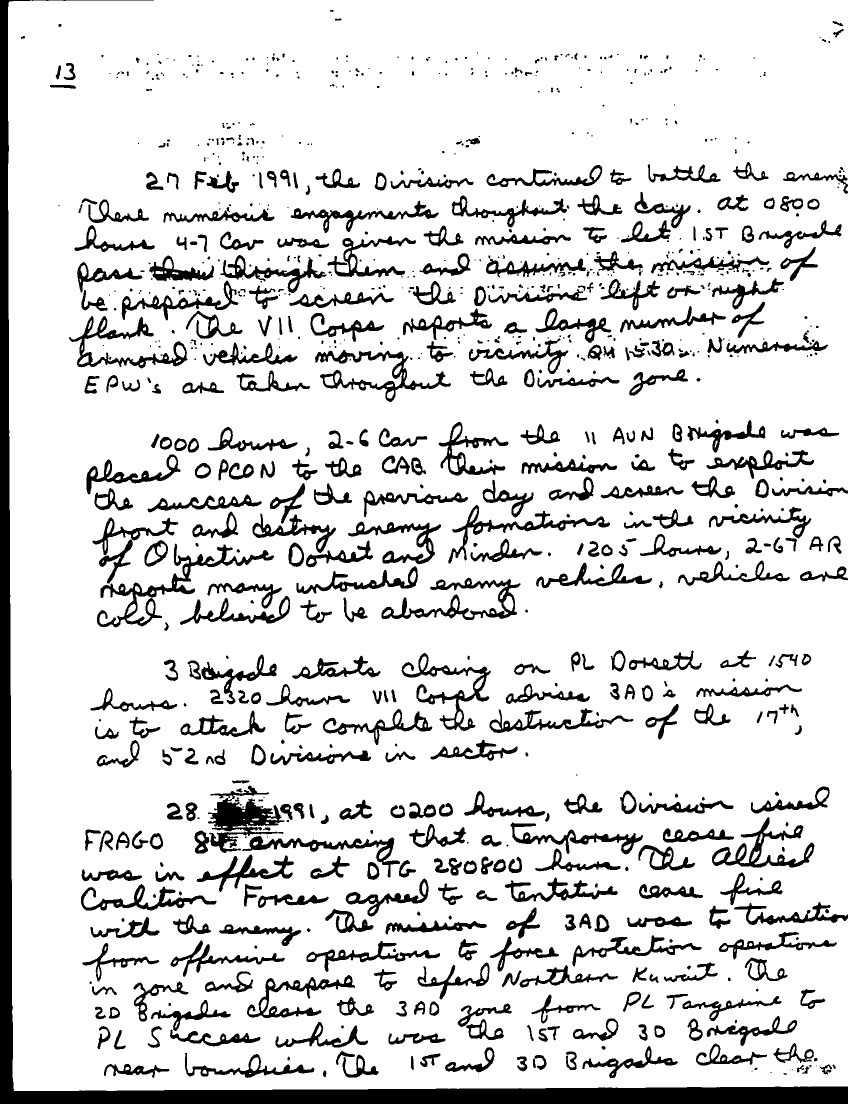 13
27 Feb 1991, the Division continued to battle the enemy
There numerous engagements throughout the day. at 0800
hours 4-7 Cav was given the mission to let 1ST Brigade
pass through them and assume the mission of
be prepared to screen the Divisions left or right
flank. The VII Corps reports a large number of
armored vehicles moving to vicinity QU 1530. Numerous
EPW's are taken throughout the Division zone.
1000 hours, 2-6 Cav from the 11 AVN Brigade was
placed OPCON to the CAB. Their mission is to exploit
the success of the previous day and screen the Division
front and destroy enemy formations in the vicinity
of Objective Dorset and Minden. 1205 hours, 2-67 AR
reports many untouched enemy vehicles, vehicles are
cold, believed to be abandoned.
3 Brigade starts closing on PL Dorsett at 1540
hours. 2320 hours VII Corps advises 3AD's mission
is to attack to complete the destruction of the 17th,
and 52nd Divisions in sector.
28 1991, at 0200 hours, the Division issued
FRAGO 84 announcing that a temporary cease fire
was in effect at DTG 280800 hours. The Allied
Coalition Forces agreed to a tentative cease fire
with the enemy. The mission of 3AD was to transition
from offensive operations to force protection operations
in zone and prepare to defend Northern Kuwait. The
2D Brigades clears the 3AD zone from PL Tangerine to
PL Success which was the 1ST and 3D Brigade
rear boundries. The 1ST and 3D Brigades clear the